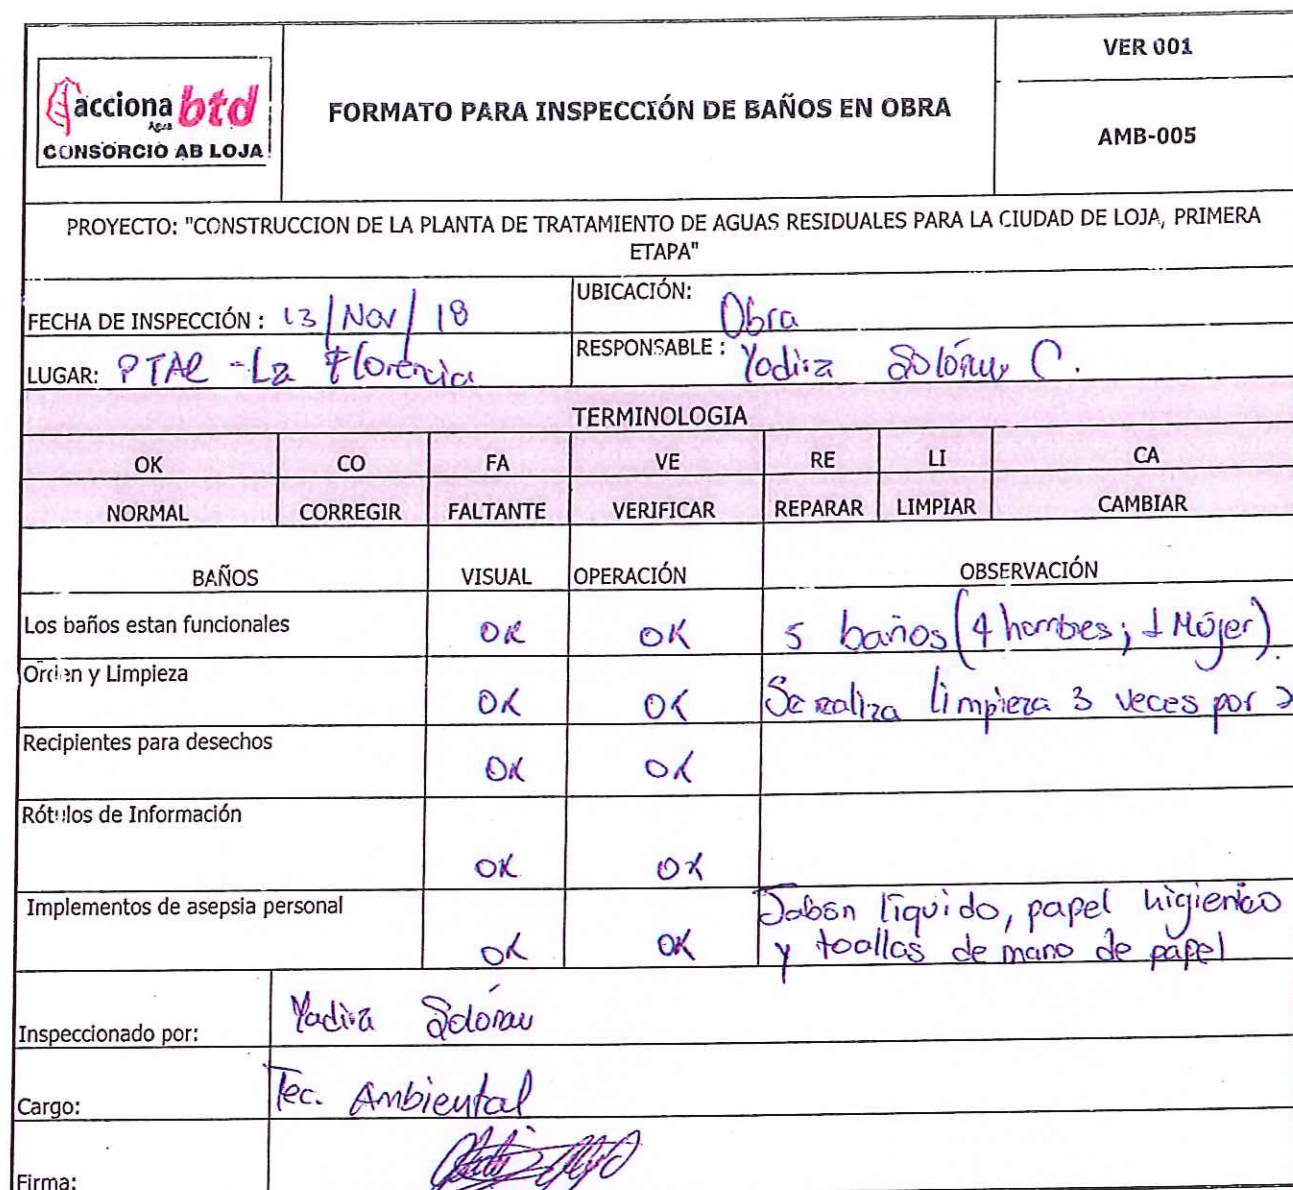 acciona btd
Agua
CONSORCIO AB LOJA
FORMATO PARA INSPECCIÓN DE BAÑOS EN OBRA
VER 001
AMB-005
PROYECTO: "CONSTRUCCION DE LA PLANTA DE TRATAMIENTO DE AGUAS RESIDUALES PARA LA CIUDAD DE LOJA, PRIMERA
ETAPA"
FECHA DE INSPECCIÓN : 13/Nov/18
UBICACIÓN: Obra
LUGAR: PTAR - La Florencia
RESPONSABLE : Yadira C.
TERMINOLOGIA
OK CO FA VE RE LI CA
NORMAL CORREGIR FALTANTE VERIFICAR REPARAR LIMPIAR CAMBIAR
BAÑOS VISUAL OPERACIÓN OBSERVACIÓN
Los baños estan funcionales OK OK 5 baños (4 hombres; 1 Mújer).
Orden y Limpieza OK OK Se realiza limpieza 3 veces por
Recipientes para desechos OK OK
Rótulos de Información OK OK
Implementos de asepsia personal OK OK Jabón líquido, papel higienico
y toallas de mano de papel
Inspeccionado por: Yadira
Cargo: Tec. Ambiental
Firma: